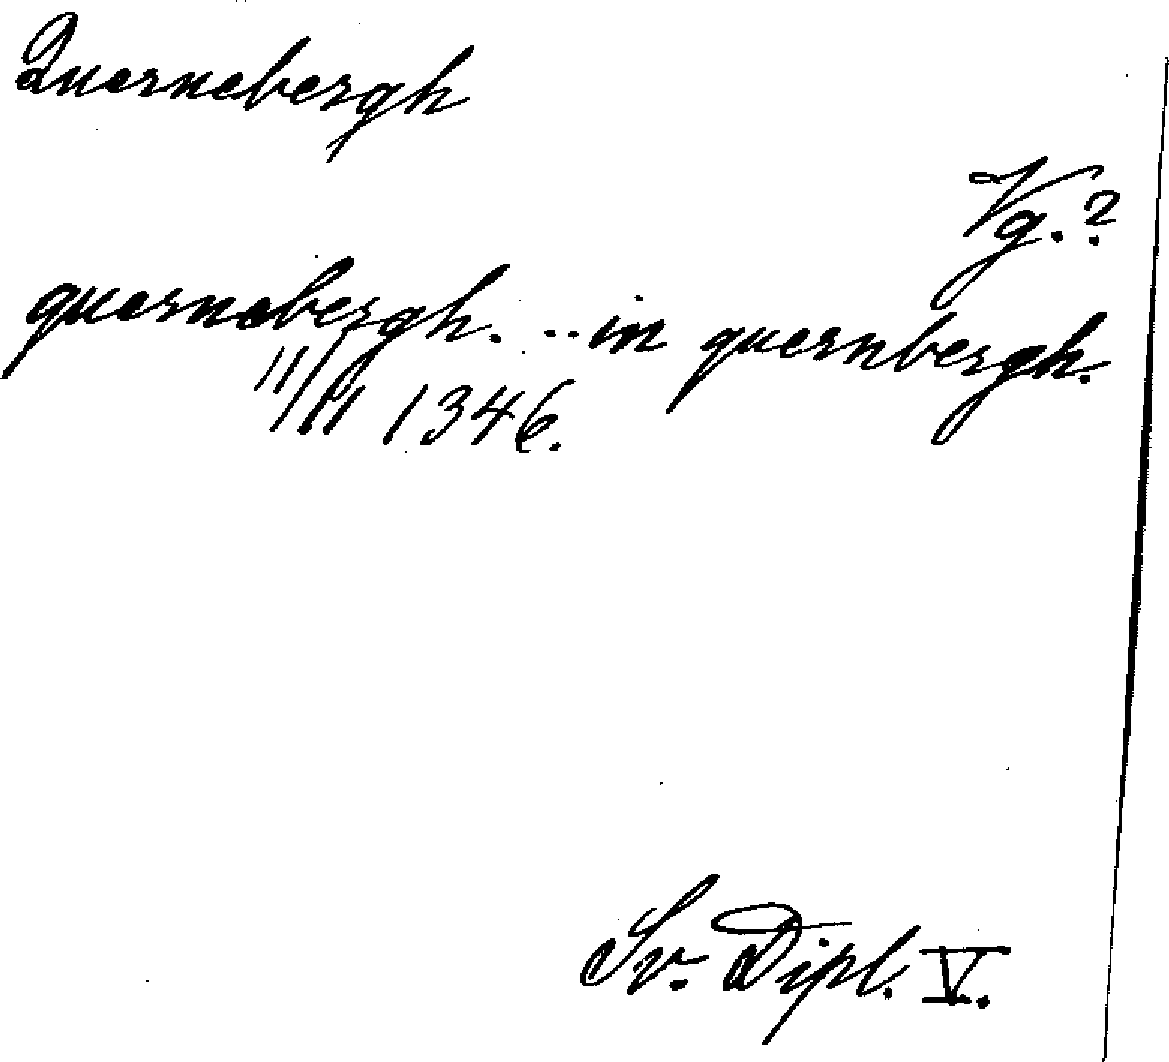 Quernebergh
Vg.?
quernebergh. ... in quernbergh.
11/11 1346.
Sv. Dipl. V.